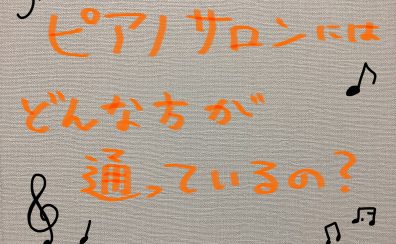 ピアノサロンには
どんな方が
通っているの？